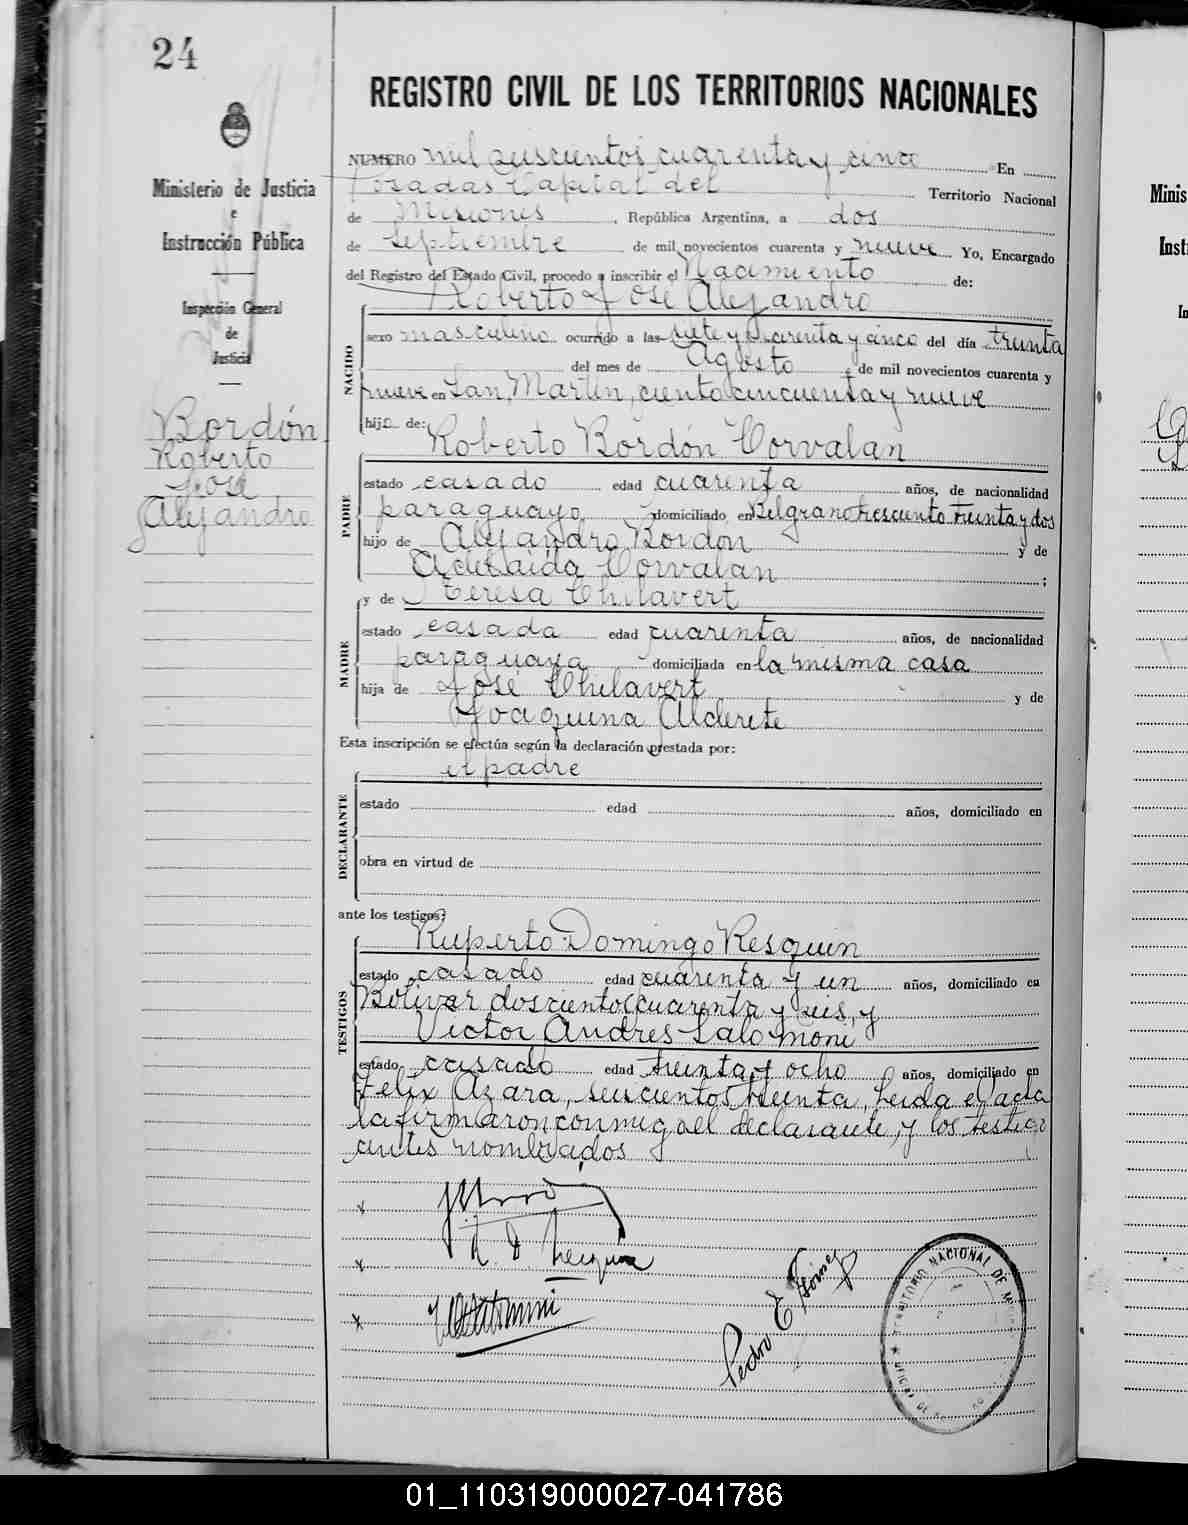 24
Ministerio de Justicia
e
Instrucción Pública
Inspección General
de
Justicia
Bordón
Roberto
José
Alejandro
REGISTRO CIVIL DE LOS TERRITORIOS NACIONALES
NUMERO mil seiscientos cuarenta y cinco En
Posadas Capital del Territorio Nacional
de Misiones, República Argentina, a dos
de Septiembre de mil novecientos cuarenta y nueve Yo, Encargado
del Registro del Estado Civil, procedo a inscribir el Nacimiento de:
Roberto José Alejandro
NACIDO
sexo masculino ocurrido a las siete y cuarenta y cinco del día treinta
del mes de Agosto de mil novecientos cuarenta y
nueve en San Martín, ciento cincuenta y nueve
hijo de: Roberto Bordón Corvalan
PADRE
estado casado edad cuarenta años, de nacionalidad
paraguayo domiciliado en Belgrano trescientos treinta y dos
hijo de Alejandro Bordon y de
Adelaida Corvalan;
y de Teresa Chilavert
MADRE
estado casada edad cuarenta años, de nacionalidad
paraguaya domiciliada en la misma casa
hija de José Chilavert y de
Joaquina Alderete
Esta inscripción se efectúa según la declaración prestada por:
el padre
DECLARANTE
estado edad años, domiciliado en
obra en virtud de
ante los testigos:
Ruperto Domingo Resquin
TESTIGOS
estado casado edad cuarenta y un años, domiciliado en
Bolívar doscientos cuarenta y seis, y
Victor Andres Salomoni
estado casado edad treinta y ocho años, domiciliado en
Felix Azara, seiscientos treinta, Leida el acta
la firmaron conmigo el declarante, y los testigos
antes nombrados
x
x
x
Pedro E Gómez
TERRITORIO NACIONAL DE
OFICINA DE
01_110319000027-041786